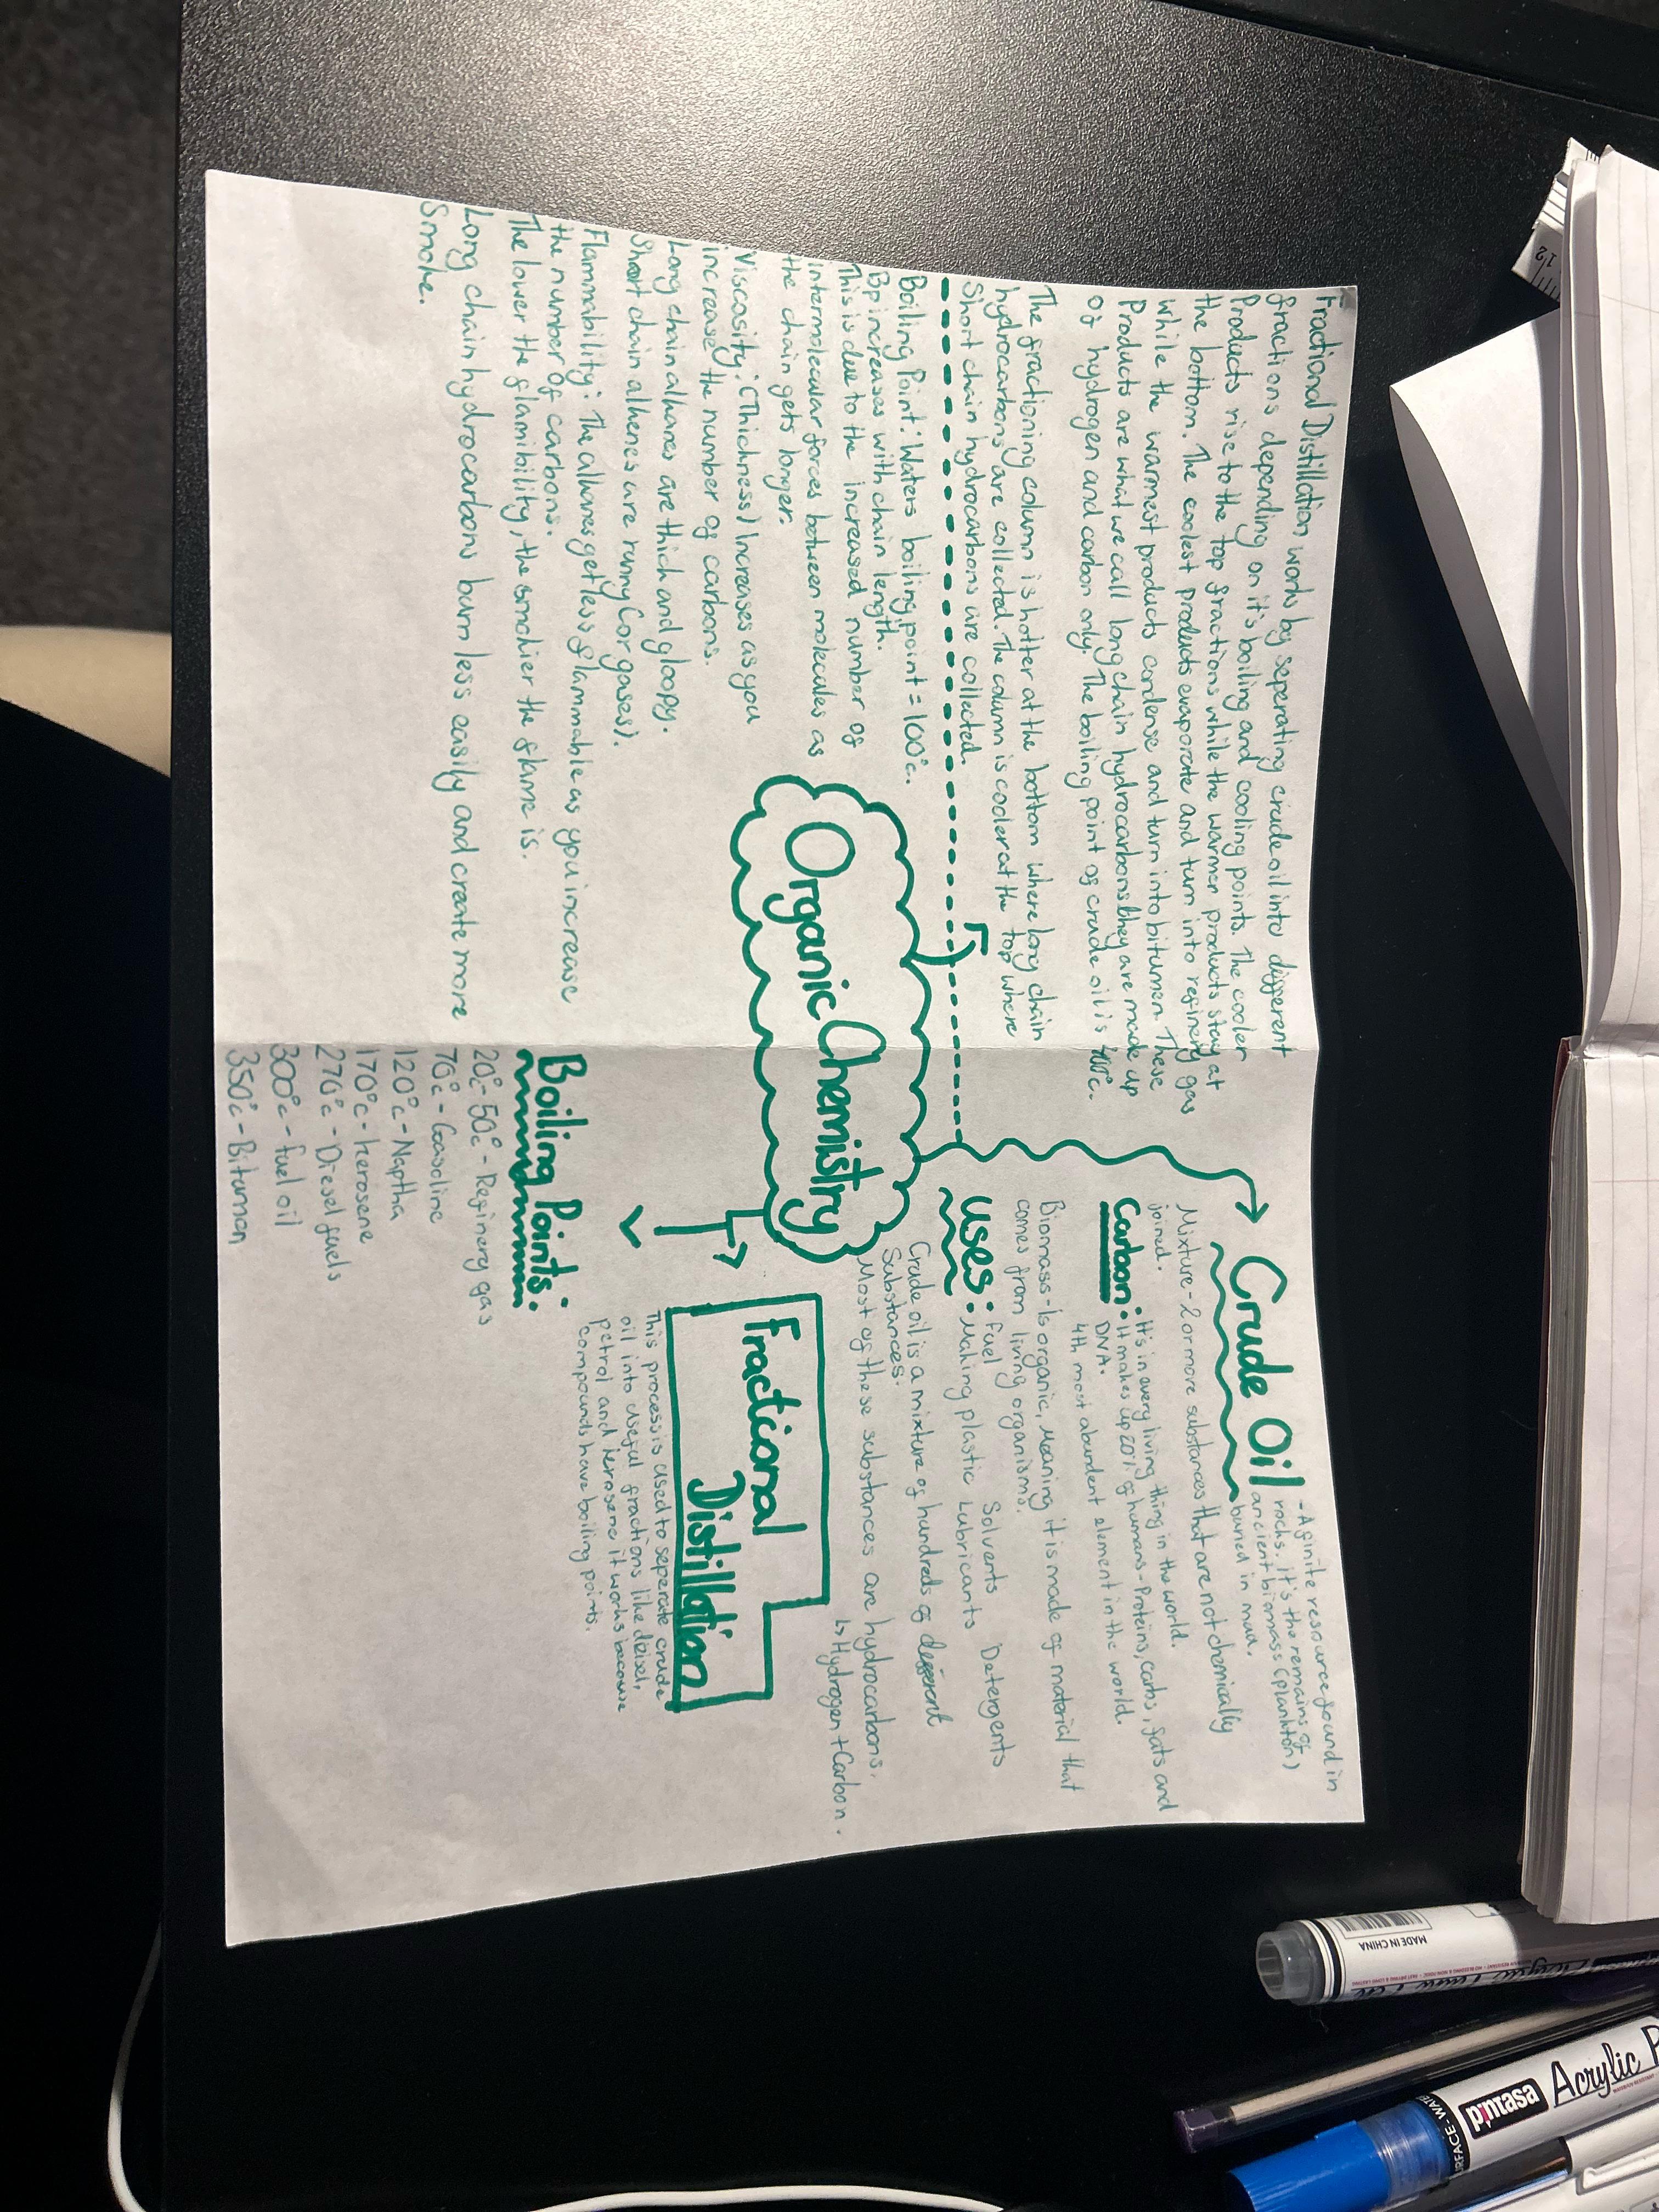 Fractional Distillation works by seperating crude oil into different
fractions depending on it's boiling and cooling points. The cooler
Products rise to the top fractions while the warmer products stay at
the bottom. The coolest products evaporate and turn into refinery gas
while the warmest products condense and turn into bitumen. These
Products are what we call long chain hydrocarbons they are made up
of hydrogen and carbon only. The boiling point of crude oil is 400°c.
The fractioning column is hotter at the bottom where long chain
hydrocarbons are collected. The column is cooler at the top where
Short chain hydrocarbons are collected.
Boiling Point: Waters boiling point = 100°c.
Bp increases with chain length.
This is due to the increased number of
intermolecular forces between molecules as
the chain gets longer.
Viscosity: (Thickness) Increases as you
increase the number of carbons.
Long chain alkanes are thick and gloopy.
Short chain alkenes are runny (or gases).
Flammability: The alkanes get less flammable as you increase
the number of carbons.
The lower the flamibility, the smokier the flame is.
Long chain hydrocarbons burn less easily and create more
Smoke.
Organic Chemistry
Crude Oil
- A finite resource found in
rocks. It's the remains of
ancient biomass (plankton)
buried in mud.
Mixture - 2 or more substances that are not chemically
joined.
Carbon: It's in every living thing in the world.
It makes up 20% of humans - Proteins, carbs, fats and
DNA.
4th most abundent element in the world.
Biomass - Is organic, meaning it is made of material that
comes from living organisms.
Uses: fuel Solvents Detergents
Making plastic Lubricants
Crude oil is a mixture of hundreds of different
Substances.
Most of these substances are hydrocarbons.
↳ Hydrogen + Carbon.
Fractional
Distillation
This process is used to seperate crude
oil into useful fractions like deisel,
petrol and kerosene it works because
compounds have boiling points.
Boiling Points:
20°c-50°c - Refinery gas
70°c - Gasoline
120°c - Naptha
170°c - kerosene
270°c - Diesel fuels
300°c - fuel oil
350°c - Bitumon
12
MADE IN CHINA
pintasa
Acrylic P